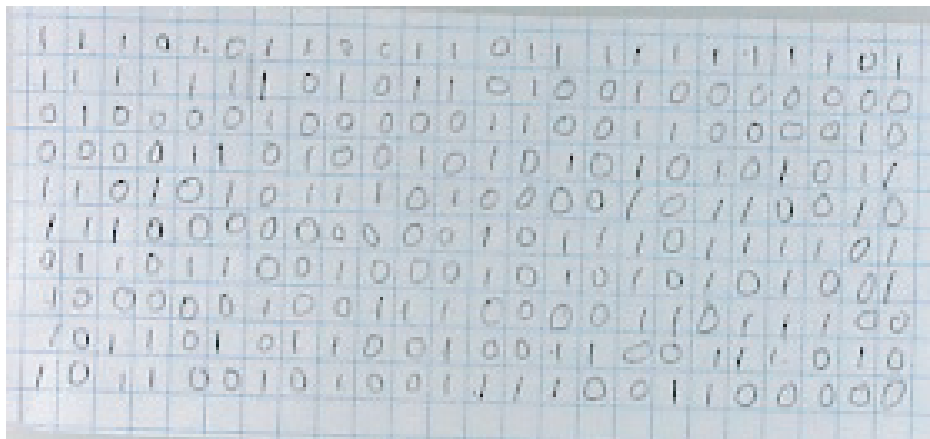 1 1 1 0 1 0 1 1 0 0 1 1 0 1 1 1 1 1 1 1 1 1 0 1
1 1 1 1 1 1 1 0 1 0 1 1 0 1 0 0 1 0 0 0 0 0 0 0
0 1 0 0 0 0 1 0 0 0 0 0 1 1 0 0 1 1 0 0 0 0 1 0
0 0 0 0 1 1 0 1 0 0 1 0 1 0 1 0 1 0 1 0 1 0 1 1
1 1 0 1 0 1 0 1 1 1 0 1 0 0 0 0 1 0 1 1 0 0 1 0
1 1 1 0 0 0 0 0 0 0 0 0 1 0 1 1 1 0 1 1 1 1 0 1
0 1 1 0 1 1 0 0 1 0 0 0 1 0 1 0 1 0 1 0 1 0 0 1
1 0 0 0 0 0 1 0 0 1 1 1 0 0 0 0 1 1 0 1 1 1 0 0
1 0 1 1 0 1 0 1 1 0 0 1 0 0 1 1 0 0 1 1 1 0 1 0
1 0 1 1 0 0 1 0 1 0 0 1 1 1 1 0 0 1 1 0 0 0 0 0